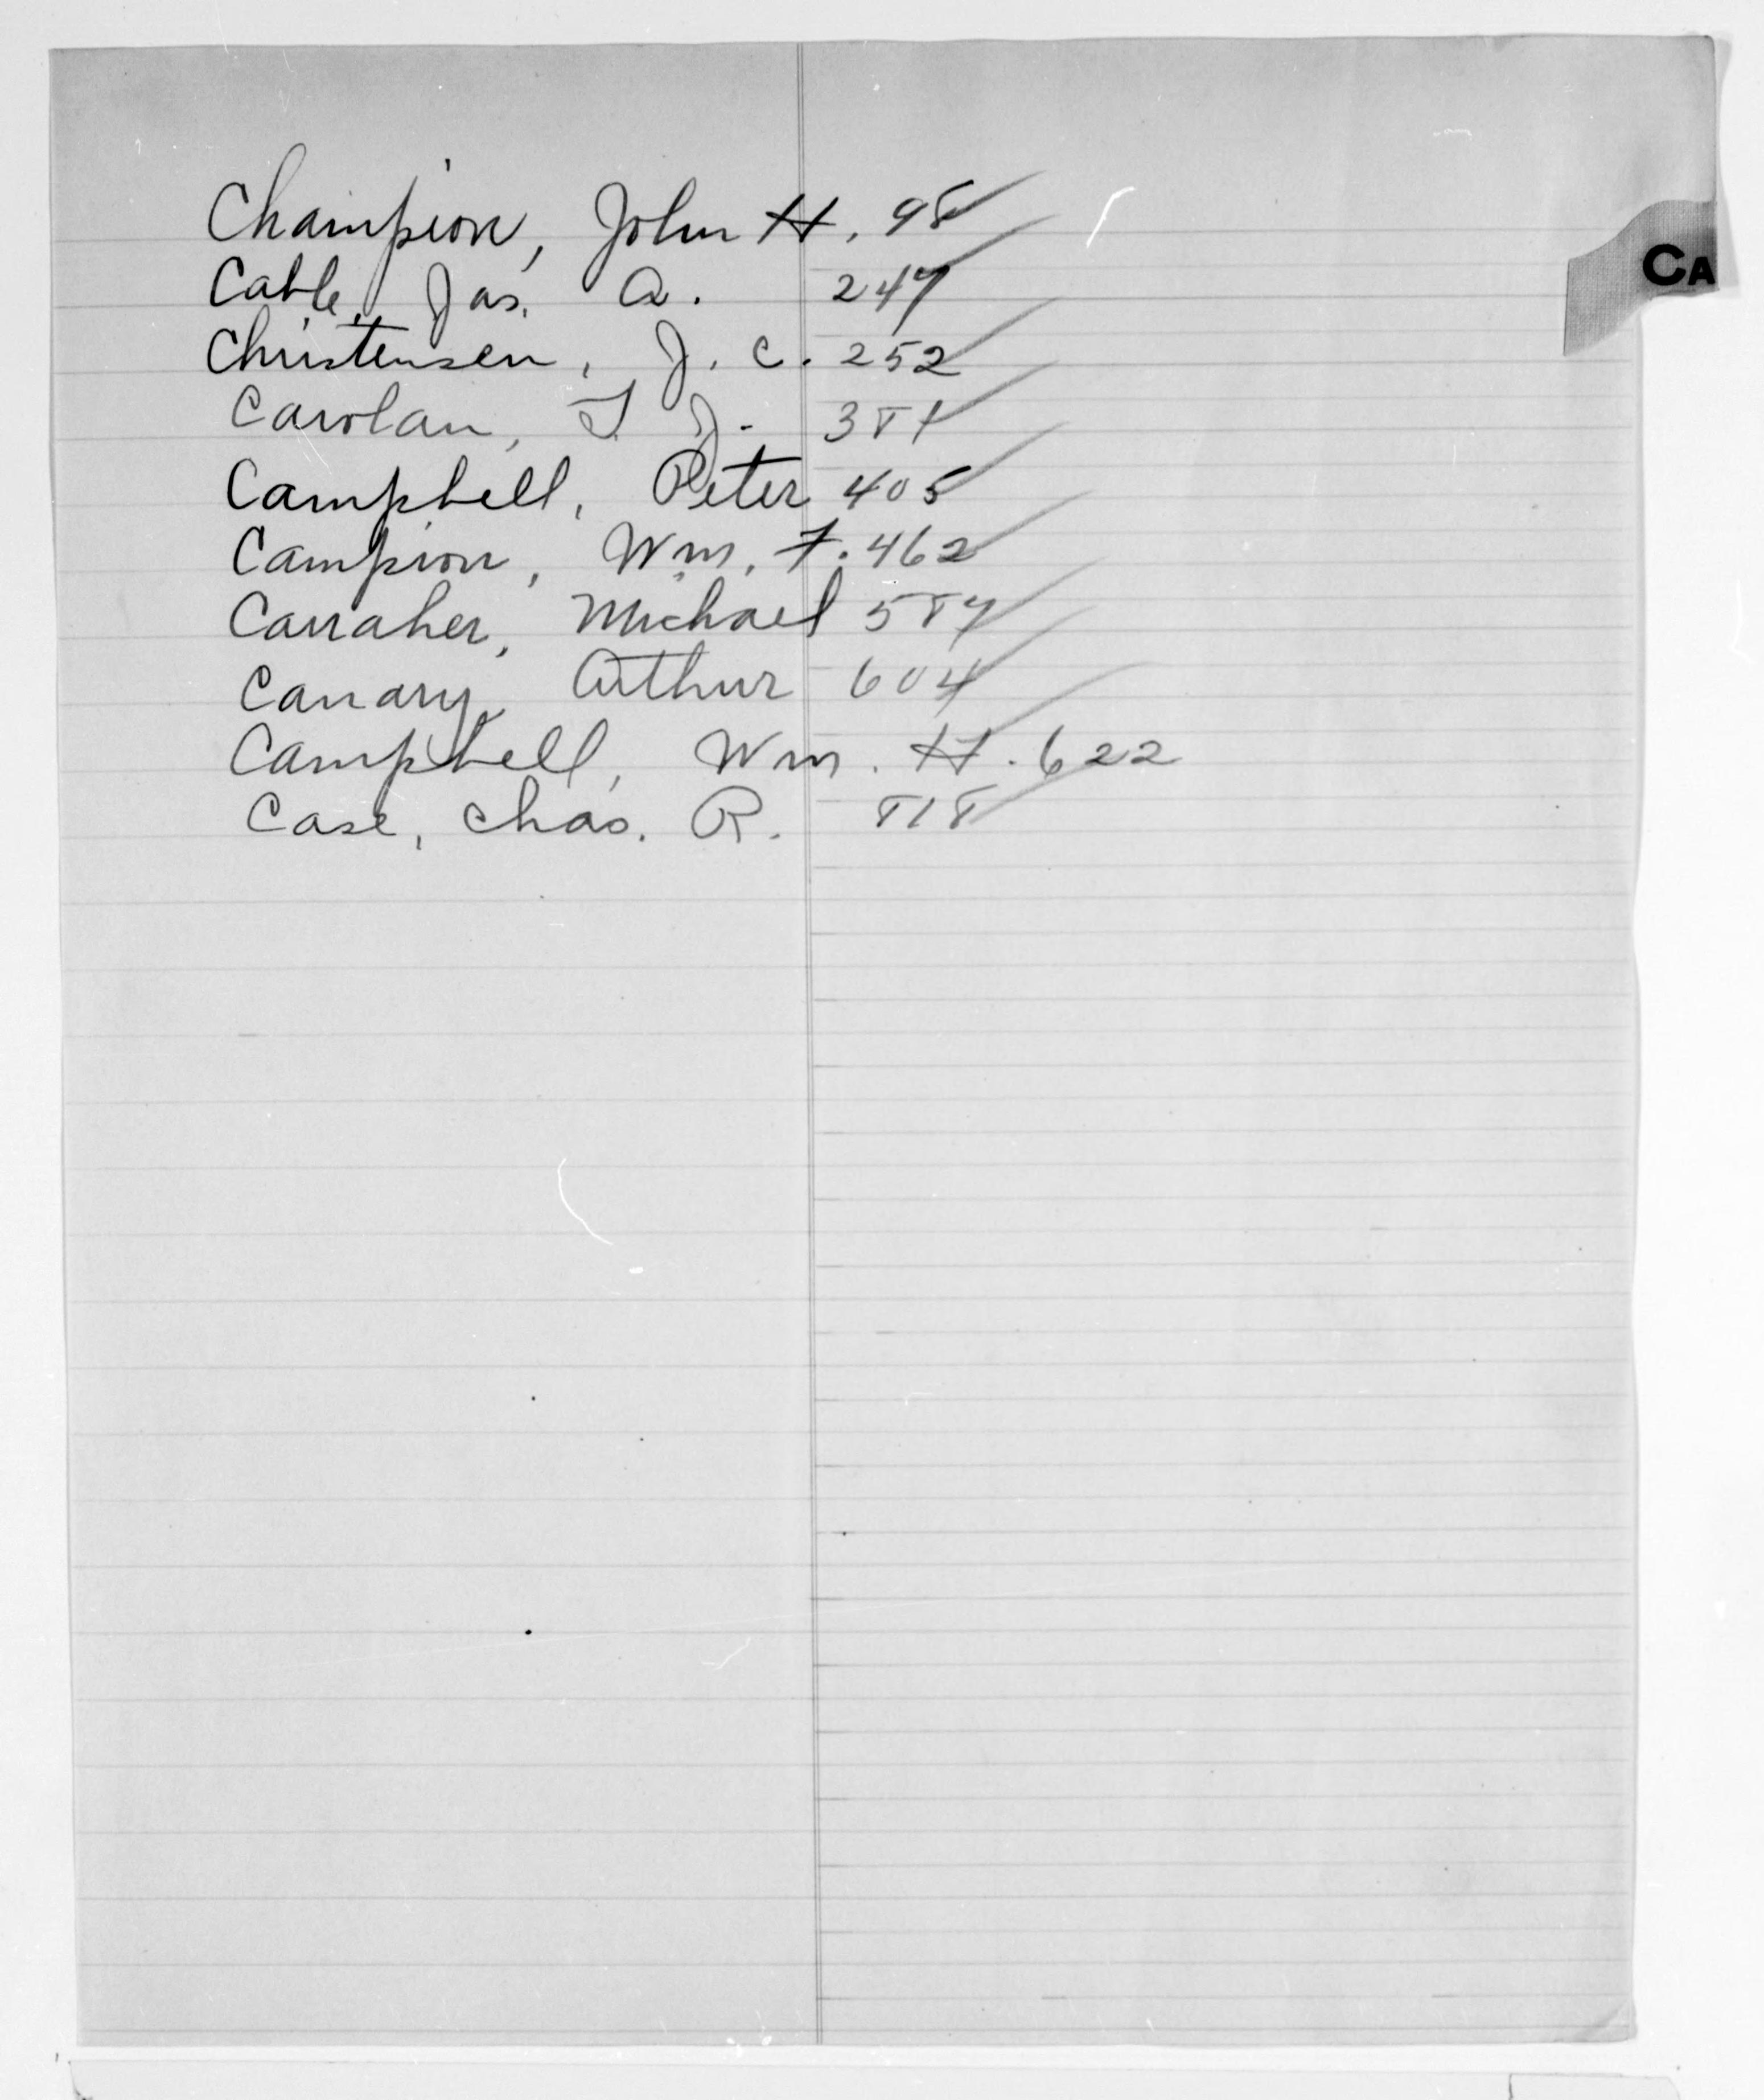 Champion, John H. 98
CA
Cable, Jas. A. 247
Christensen, J. C. 252
Carolan, T. J. 381
Campbell, Peter 405
Campion, Wm. F. 462
Carraher, Michael 587
Canary, Arthur 604
Campbell, Wm. H. 622
Case, Chas. R. 818